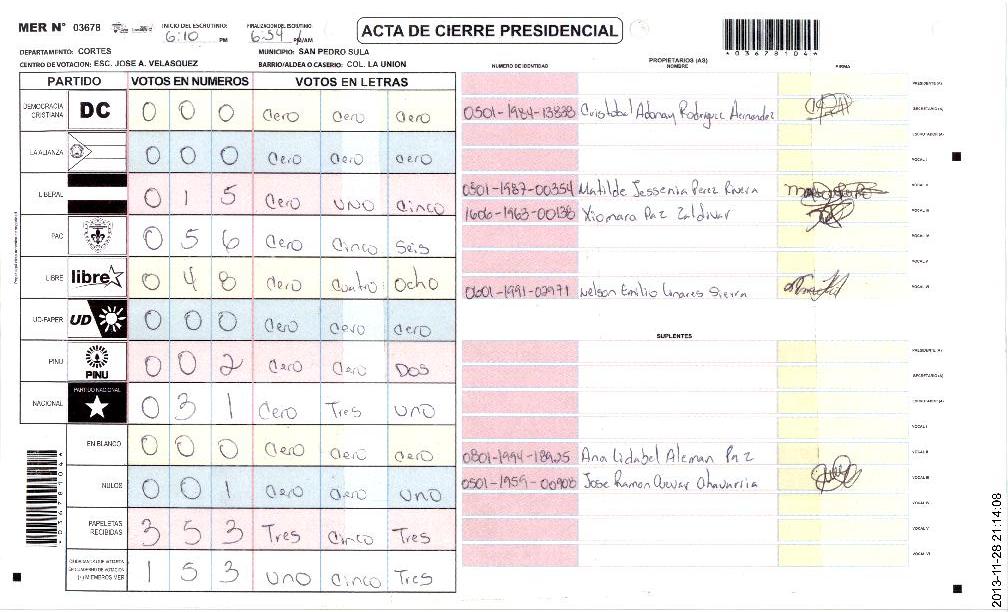 MER Nº 03678
INICIO DEL ESCRUTINIO: 6:10 PM
FINALIZACION DEL ESCRUTINIO: 6:54 PM/AM
ACTA DE CIERRE PRESIDENCIAL
*03678104*
DEPARTAMENTO: CORTES
MUNICIPIO: SAN PEDRO SULA
CENTRO DE VOTACION: ESC. JOSE A. VELASQUEZ
BARRIO/ALDEA O CASERIO: COL. LA UNION
PARTIDO VOTOS EN NUMEROS VOTOS EN LETRAS
DEMOCRACIA CRISTIANA DC 0 0 0 Cero Cero Cero
LA ALIANZA 0 0 0 Cero Cero Cero
LIBERAL 0 1 5 Cero UNO Cinco
PAC 0 5 6 Cero Cinco Seis
LIBRE libre 0 4 8 Cero Cuatro Ocho
UD-FAPER UD 0 0 0 Cero Cero Cero
PINU PINU 0 0 2 Cero Cero Dos
NACIONAL PARTIDO NACIONAL 0 3 1 Cero Tres uno
EN BLANCO 0 0 0 Cero Cero Cero
NULOS 0 0 1 Cero Cero uno
PAPELETAS RECIBIDAS 3 5 3 Tres Cinco Tres
(+) MIEMBROS MER 1 5 3 uno Cinco Tres
*03678104*
PROPIETARIOS (AS)
NUMERO DE IDENTIDAD NOMBRE FIRMA
PRESIDENTE (A)
0501-1984-13838 Cristobal Adonay Rodriguez Hernandez SECRETARIO (A)
ESCRUTADOR (A)
VOCAL I
0501-1987-00354 Matilde Jessenia Perez Rivera VOCAL II
1606-1963-00138 Xiomara Paz Zaldivar VOCAL III
VOCAL IV
VOCAL V
0601-1991-02971 Nelson Emilio Linares Sierra VOCAL VI
SUPLENTES
PRESIDENTE (A)
SECRETARIO (A)
ESCRUTADOR (A)
VOCAL I
0801-1994-18925 Ana Lidabel Aleman Paz VOCAL II
0501-1959-00908 Jose Ramon Cuevar Chavarria VOCAL III
VOCAL IV
VOCAL V
VOCAL VI
2013-11-28 21:14:08